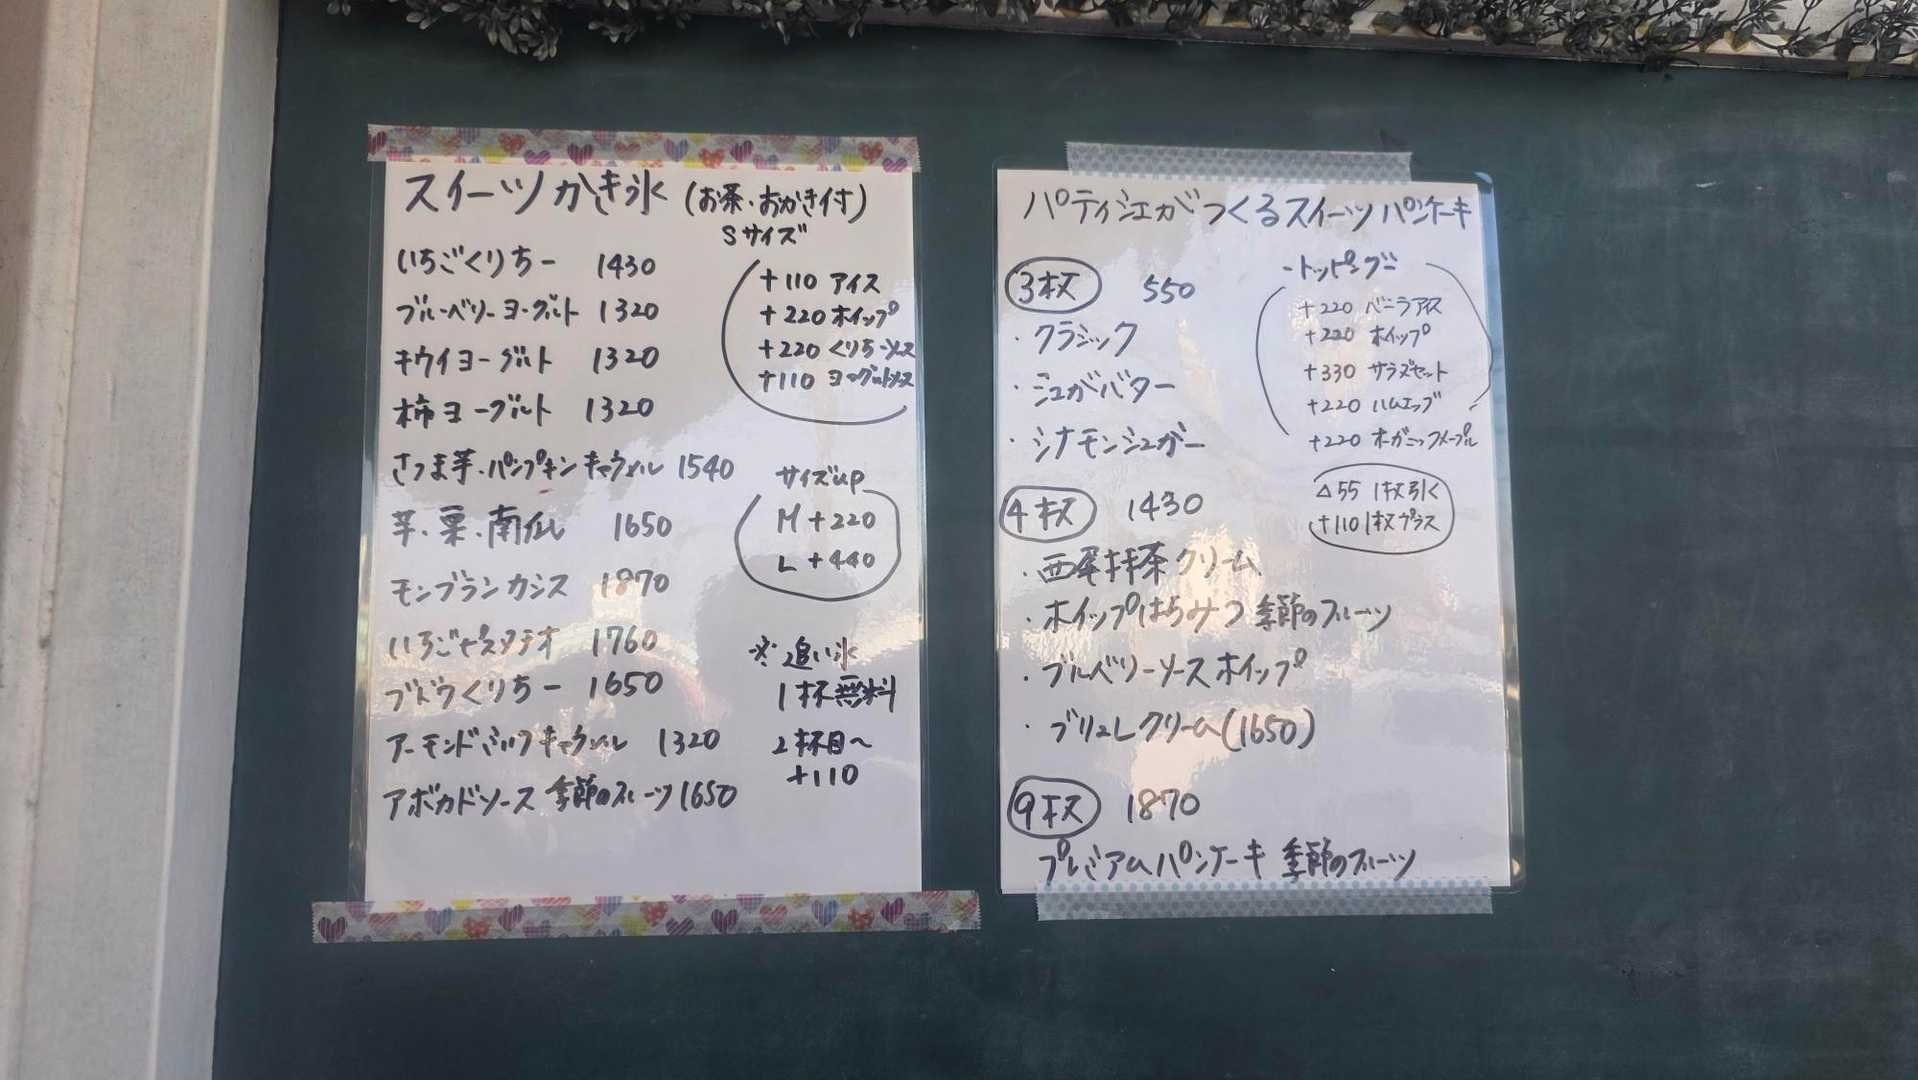 スイーツかき氷 (お茶・おかき付)
Sサイズ
いちごくりちー 1430
ブルーベリーヨーグルト 1320
キウイヨーグルト 1320
柿ヨーグルト 1320
さつま芋・パンプキンキャラメル 1540
芋・栗・南仏 1650
モンブランカシス 1870
いちごピスタチオ 1760
ブドウくりちー 1650
アーモンドミルクキャラメル 1320
アボカドソース 季節のフルーツ 1650
+110 アイス
+220 ホイップ
+220 くりちーソース
+110 ヨーグルトソース
サイズup
M +220
L +440
※追い氷
1杯無料
2杯目〜
+110
パティシエがつくるスイーツパンケーキ
3枚 550
・クラシック
・シュガバター
・シナモンシュガー
4枚 1430
・西尾抹茶クリーム
・ホイップはちみつ 季節のフルーツ
・ブルベリーソースホイップ
・ブリュレクリーム(1650)
9枚 1870
プレミアムパンケーキ 季節のフルーツ
-トッピング-
+220 バニラアイス
+220 ホイップ
+330 サラダセット
+220 ハムエッグ
+220 オーガニックメープル
△55 1枚引く
+110 1枚プラス